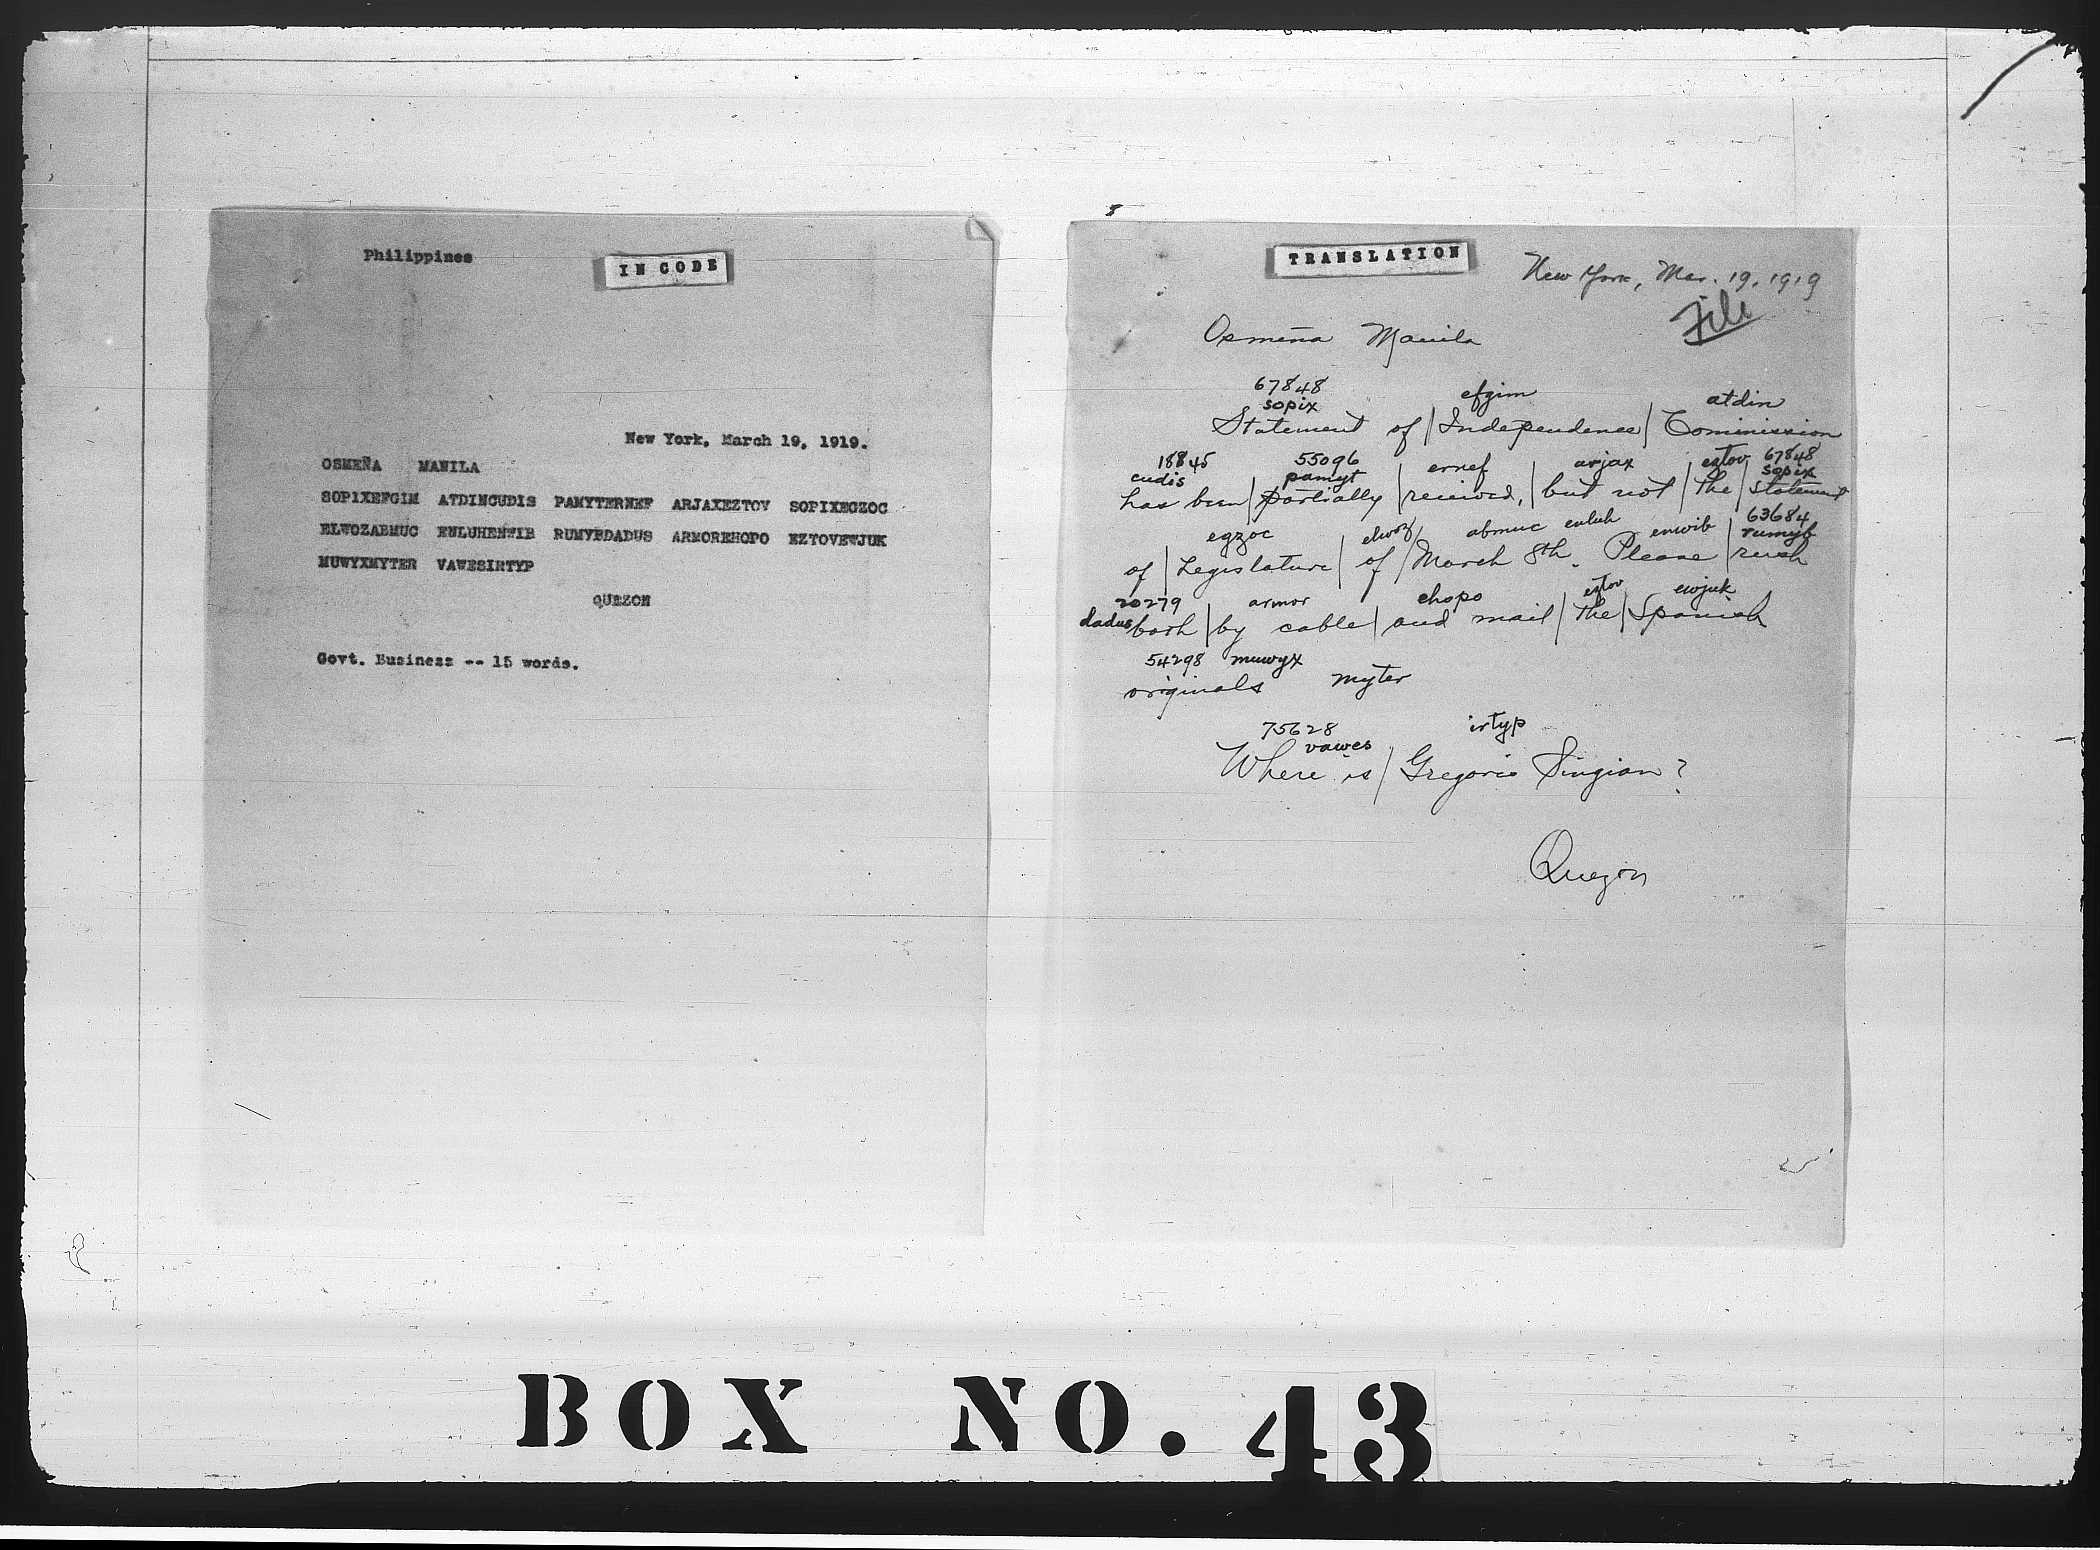 Philippines
IN CODE
New York, March 19, 1919.
OSMEÑA MANILA
SOPIXEFGIM ATDINCUDIS PAMYTERNEF ARJAXEZTOV SOPIXEGZOC
ELWOZABMUC ENLUHENWIB RUMYBDADUS ARMOREHOPO EZTOVEWJUK
MUWYXMYTER VAWESIRTYP
QUEZON
Govt. Business -- 15 words.
TRANSLATION
New York, Mar. 19, 1919
File
Osmeña Manila
67848 efgim atdin
sopix
Statement of / Independence / Commission
18845 55096 ernef arjax eztov 67848
cudis pamyt sopix
has been / partially / received, / but not / the / statement
egzoc elwoz abmuc enluh enwib 63684
rumyb
of / Legislature / of / March 8th. Please / rush
20279 armor ehopo eztov ewjuk
dadus both / by cable / and mail / the / Spanish
54298 muwyx
originals myter
75628 irtyp
vawes
Where is / Gregorio Singian?
Quezon
BOX NO. 43